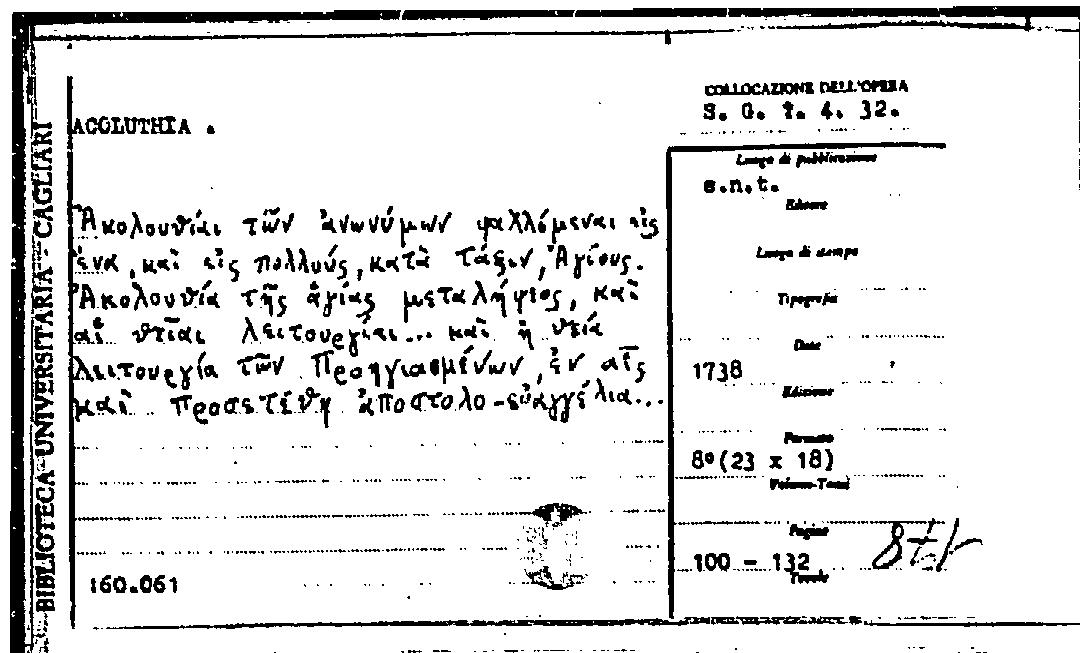 BIBLIOTECA UNIVERSITARIA - CAGLIARI
ACOLUTHIA .
Ἀκολουθίαι τῶν ἀνωνύμων ψαλλόμεναι εἰς
ἕνα, καὶ εἰς πολλούς, κατὰ τάξιν, Ἁγίους.
Ἀκολουθία τῆς ἁγίας μεταλήψεος, καὶ
αἱ θεῖαι λειτουργίαι... καὶ ἡ θεία
λειτουργία τῶν Προηγιασμένων, ἐν αἷς
καὶ προσετέθη ἀποστολο-εὐαγγέλια...
160.061
COLLOCAZIONE DELL'OPERA
S. G. 4. 32.
Luogo di pubblicazione
s.n.t.
Editore
Luogo di stampa
Tipografia
Date
1738
Edizione
Formato
8º(23 x 18)
Volume-Tomi
Pagine
100 - 132
Tavole